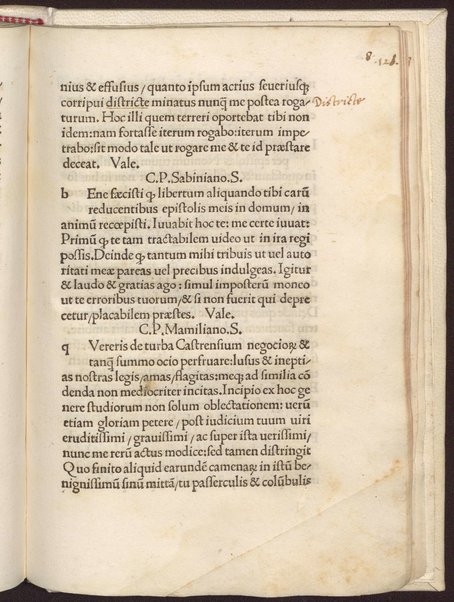 8 121
nius & effusius/quanto ipsum acrius seueriusq;
corripui districte minatus nunq̄ me postea roga-
Districte
turum. Hoc illi quem terreri oportebat tibi non
idem:nam fortasse iterum rogabo:iterum impe-
trabo:sit modo tale ut rogare me & te id præstare
deceat. Vale.
C.P.Sabiniano.S.
b Ene fæcisti q libertum aliquando tibi carū
reducentibus epistolis meis in domum/in
animū recœpisti. Iuuabit hoc te:me certe iuuat:
Primū q te tam tractabilem uideo ut in ira regi
possis.Deinde q tantum mihi tribuis ut uel auto
ritati meæ pareas uel precibus indulgeas. Igitur
& laudo & gratias ago:simul imposterū moneo
ut te erroribus tuorum/& si non fuerit qui depre
cetur/placabilem præstes. Vale.
C.P.Mamiliano.S.
q Vereris de turba Castrensium negocioꝝ &
tanq̄ summo ocio perfruare:lusus & inepti-
as nostras legis/amas/flagitas:meq; ad similia cō
denda non mediocriter incitas.Incipio ex hoc ge
nere studiorum non solum oblectationem:uerū
etiam gloriam petere/post iudicium tuum uiri
eruditissimi/grauissimi/ac super ista uerissimi/
nunc me rerū actus modice:sed tamen distringit
Quo finito aliquid earundē camenaꝝ in istū be-
nignissimū sinū mittā/tu passerculis & colūbulis